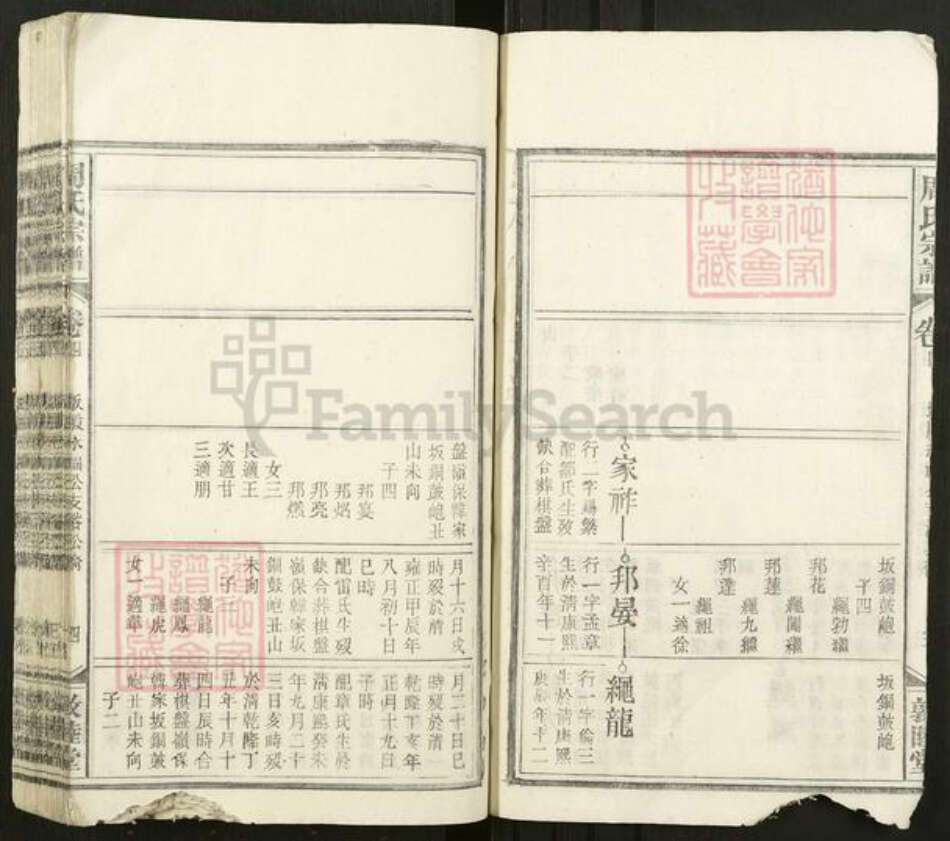 周氏宗譜
卷
坂銅鼓𡶶
子四
繩勃繼
邦花
繩閣繼
邦蓮
繩九繼
邦達
繩祖
女一適徐
坂銅鼓𡶶
家祚
行二字錫繁
配鄒氏生歿
缺合葬棋盤
邦晏
行一字孟章
生於清康熙
辛酉年十一
繩龍
行一字倫三
生於清康熙
庚辰年十二
盤嶺保韓家
坂銅鼓𡶶丑
山未向
子四
邦宴
邦炤
邦亮
邦燃
女三
長適王
次適甘
三適朋
月十六日戌
時歿於清
雍正甲辰年
八月初十日
巳時
配雷氏生歿
缺合葬棋盤
嶺保韓家坂
銅鼓𡶶丑山
未向
子三
繩龍
繩鳳
繩虎
女一適華
月二十日巳
時歿於清
乾隆丁亥年
正月十九日
子時
配章氏生於
清康熙癸未
年九月二十
三日亥時歿
於清乾隆丁
丑年十月十
四日辰時合
葬棋盤嶺保
韓家坂銅鼓
𡶶丑山未向
子二
周氏宗譜
卷四
四
敦睦堂
FamilySearch